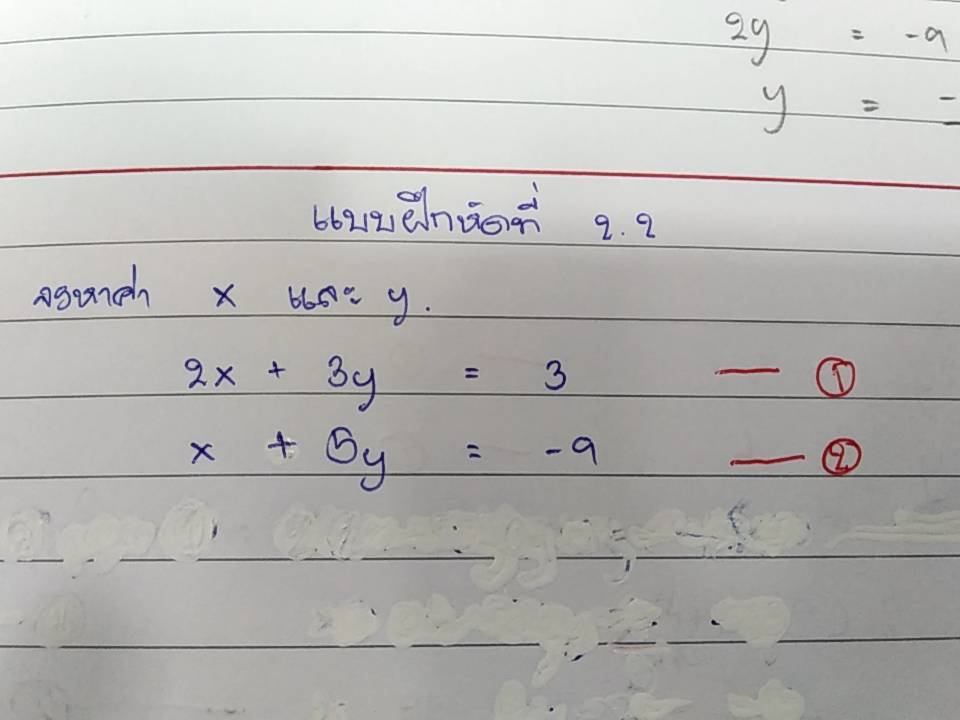 2y = -9
y = -
แบบฝึกหัดที่ 2.2
จงหาค่า x และ y.
2x + 3y = 3 — ①
x + 5y = -9 — ②